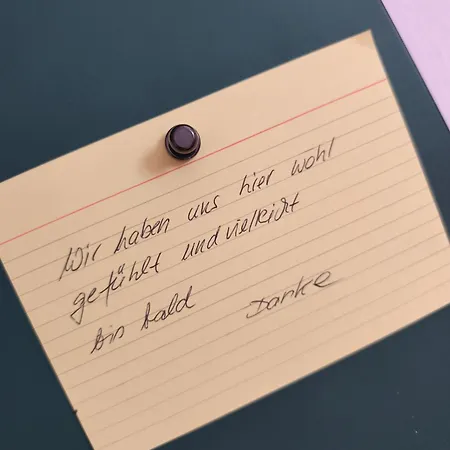 Wir haben uns hier wohl
gefühlt und vielleicht
bis bald Danke